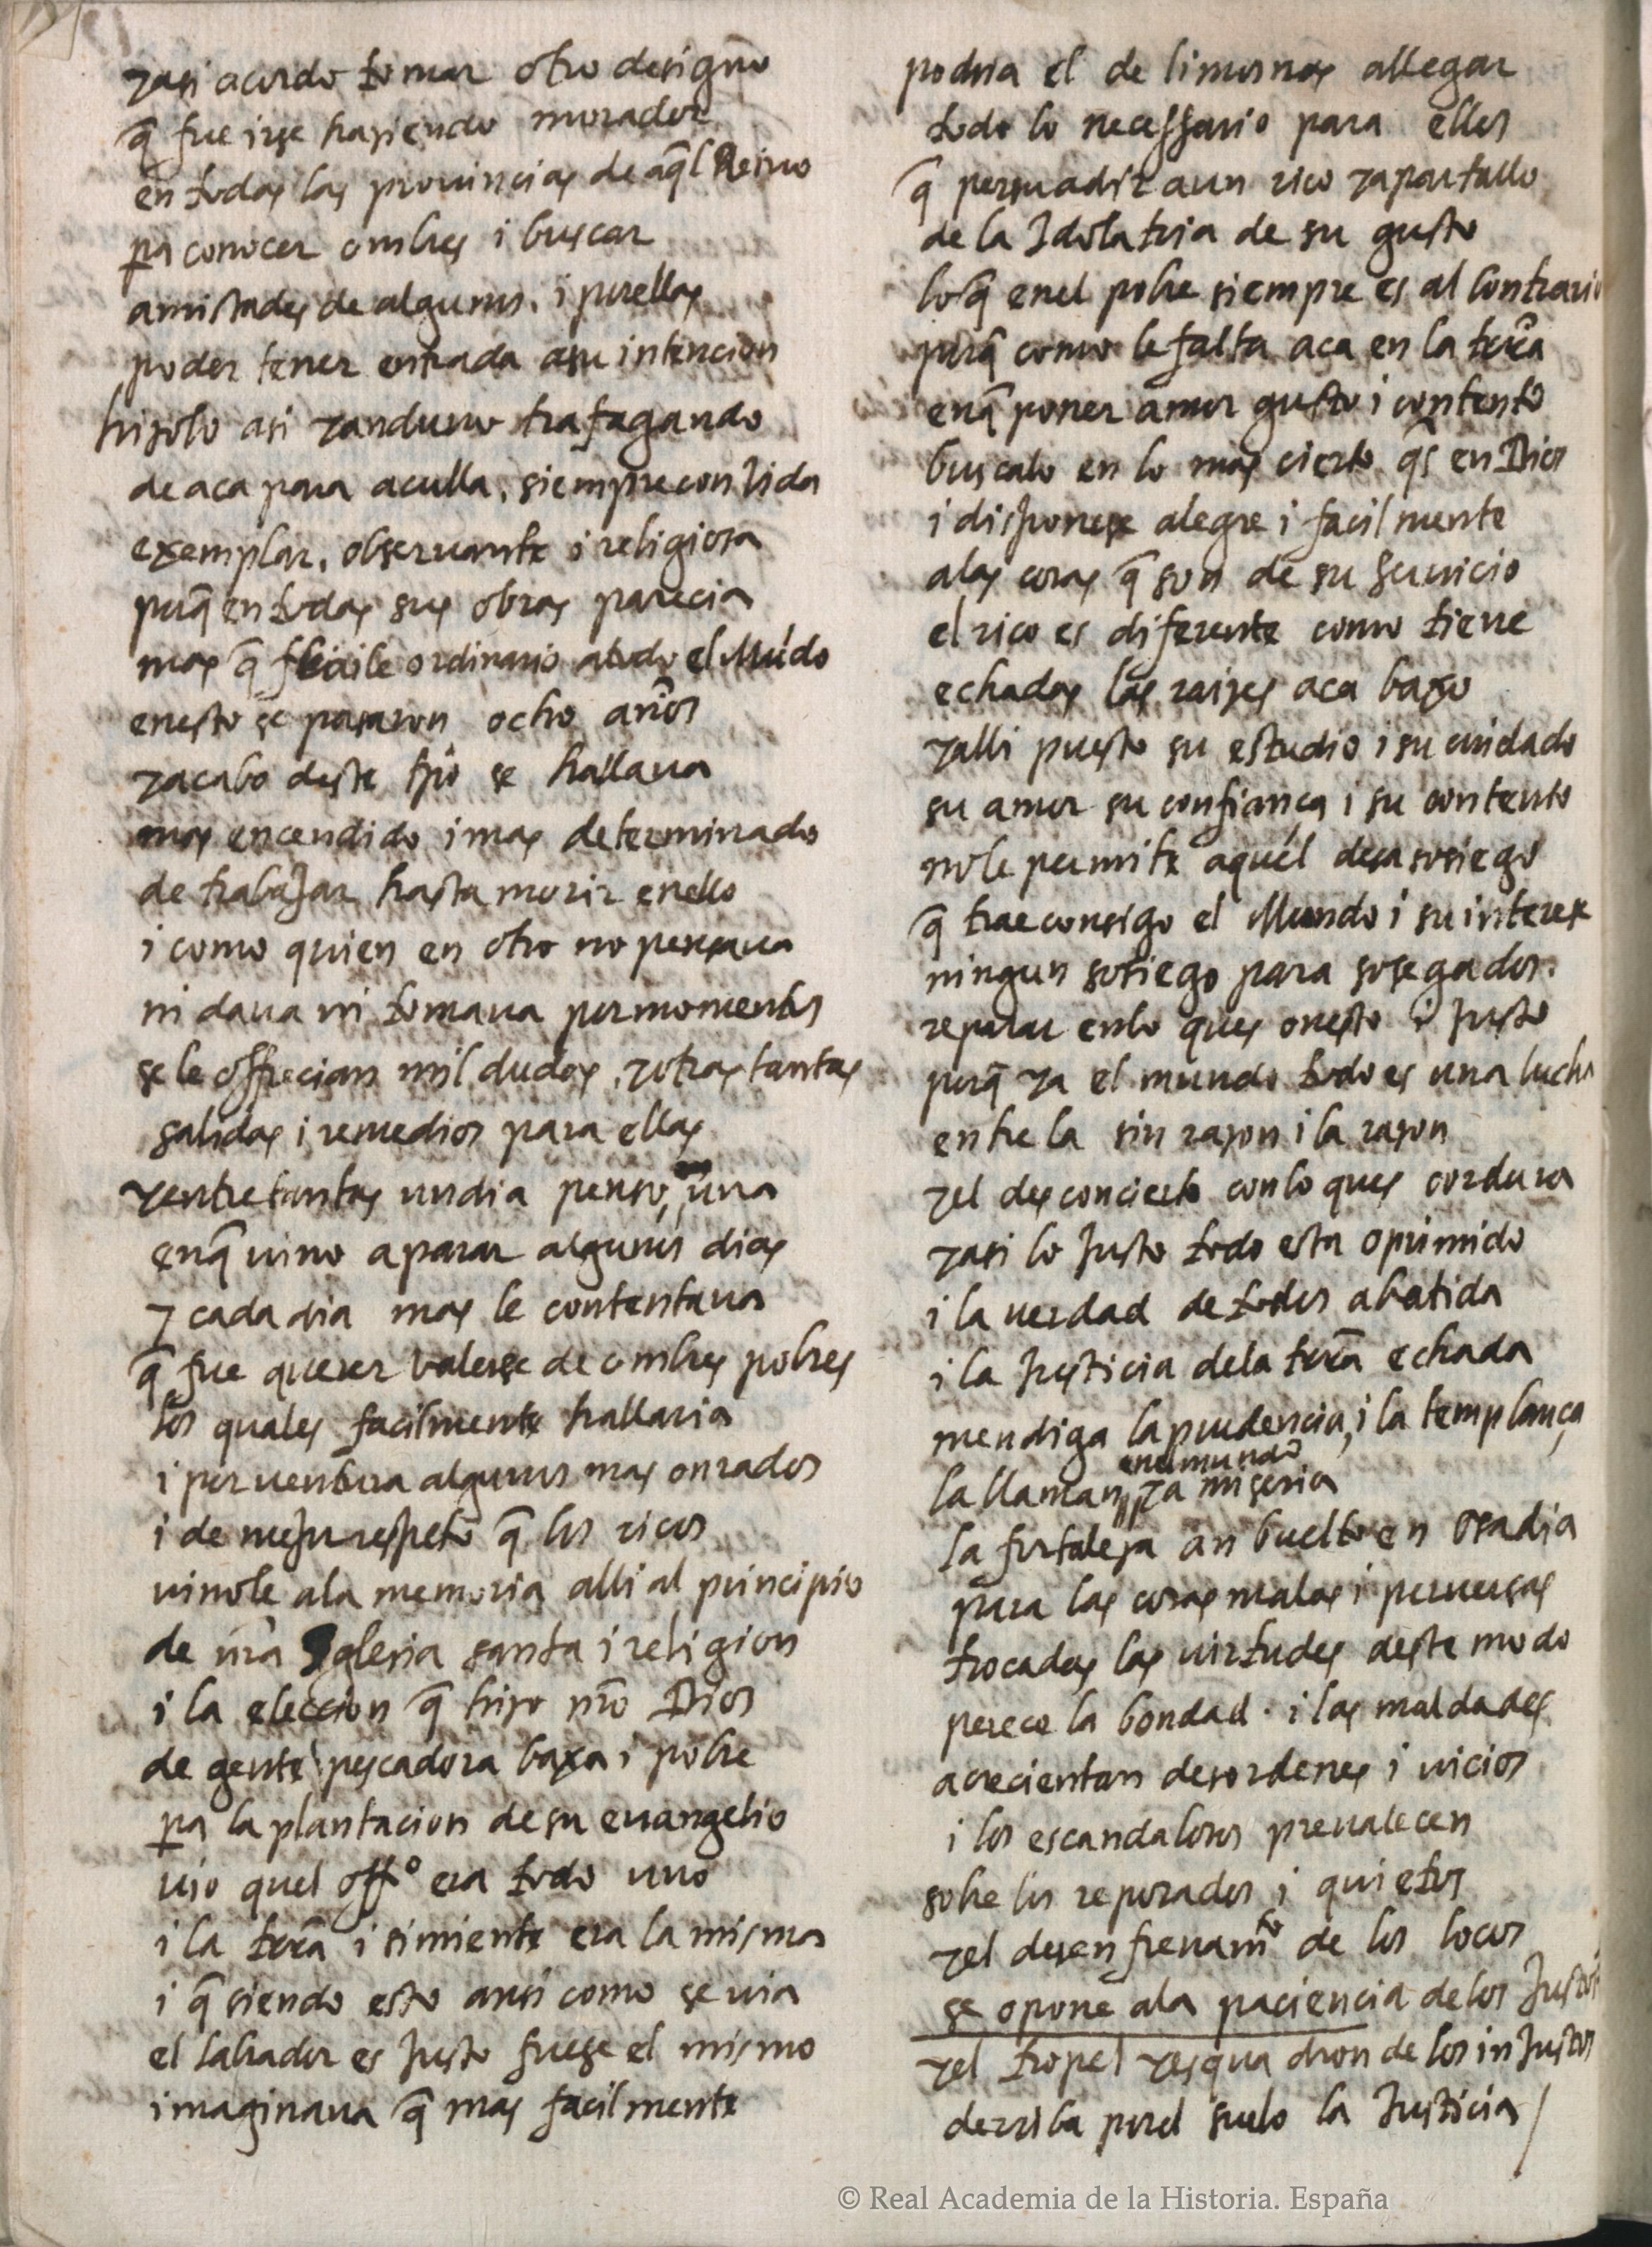 yasi acordo tomar otro designo
q̃ fue irse haziendo morador
en todas las prouincias de aq̃l Reino
pa conocer ombres i buscar
amistades de algunos. i por ellas
poder tener entrada a su intencion
hizolo asi y anduuo trafagando
de aca para aculla. siempre con vida
exemplar. obseruante i religiosa
porq̃ en todas sus obras parecia
mas q̃ fraile ordinario a todo el Mũdo
enesto se pasaron ocho años
yacabo deste tpõ se hallaua
mas encendido i mas determinado
de trabajar hasta morir enello
i como quien en otro no pensaua
ni daua ni tomaua por momentos
se le offrecian mil dudas, yotras tantas
salidas i remedios para ellas
yentre tantas undia penso, una
enq̃ uino aparar algunos dias
y cada dia mas le contentaua
q̃ fue querer valerse de ombres pobres
los quales facilmente hallaria
i por uentura algunos mas onrados
i de mejor respeto q̃ los ricos
uinole ala memoria alli al principio
de nrã Iglesia santa i religion
i la eleccion q̃ hizo nrõ Dios
de gente pescadora baxa i pobre
pa la plantacion de su euangelio
uio quel offº era todo uno
i la trrã i simiente era la misma
i q̃ siendo esto ansi como se uia
el labrador es justo fuese el mismo
imaginaua q̃ mas facilmente
podria el de limosnas allegar
todo lo necessario para ellos
q̃ persuadir aun rico yapartallo
de la Idolatria de su gusto
loq̃ enel pobre siempre es al contrario
porq̃ como le falta aca en la trrã
enq̃ poner amor gusto i contento
buscalo en lo mas cierto q̃s en Dios
i disponese alegre i facilmente
alas cosas q̃ son de su seruicio
el rico es diferente como tiene
echadas las raizes aca baxo
yalli puesto su estudio i su cuidado
su amor su confiança i su contento
nole permite aquel desasosiego
q̃ trae consigo el Mundo i su interese
ningun sosiego para sosegados.
reparar enlo ques onesto i justo
porq̃ ya el mundo todo es una lucha
entre la sin razon i la razon
yel desconcierto conlo ques cordura
yasi lo justo todo esta oprimido
i la uerdad de todos abatida
i la justicia dela trrã echada
mendiga la prudencia, i la templança
enel mundo
la llaman ya miseria
la fortaleza an buelto en osadia
para las cosas malas i peruersas
trocadas las uirtudes deste modo
perece la bondad. i las maldades
acrecientan desordenes i uicios
i los escandalosos preualecen
sobre los reposados i quietos
yel desenfrenamto de los locos
se opone ala paciencia de los justos
yel tropel yesquadron de los injustos
derriba porel suelo la justicia /
© Real Academia de la Historia. España